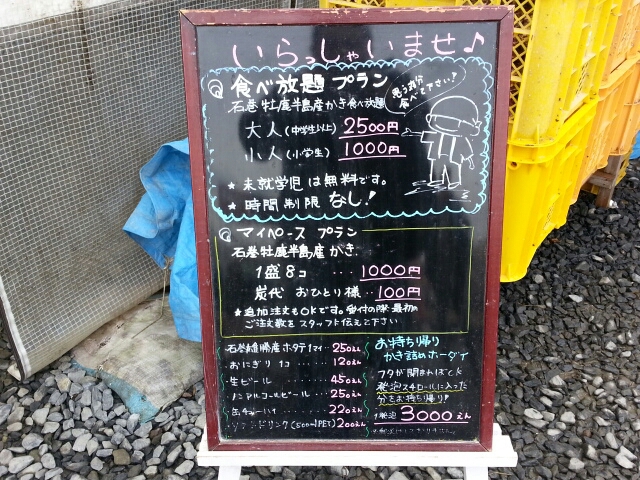 いらっしゃいませ♪
食べ放題 プラン
石巻 牡鹿半島産かき食べ放題
思う存分
食べて下さい!
大人(中学生以上) 2500円
小人(小学生) 1000円
★ 未就学児は無料です。
★ 時間制限 なし!
マイペース プラン
石巻牡鹿半島産 かき
1盛8コ ・・・ 1000円
炭代 おひとり様 ・・ 100円
★追加注文もOKです。受付の際、最初の
ご注文数をスタッフ伝えて下さい
石巻雄勝産ホタテ1マイ・・250えん
おにぎり 1コ ・・・ 120えん
生ビール ・・・ 450えん
ノンアルコールビール ・・・ 250えん
缶チューハイ ・・・ 220えん
ソフトドリンク(500mlPET) 200えん
お持ち帰り
かき詰めホーダイ
フタが閉まればOK
発泡スチロールに入った
分をお持ち帰り!
3000えん